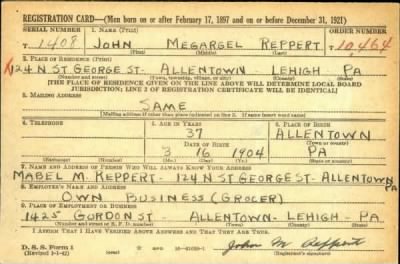 REGISTRATION CARD—(Men born on or after February 17, 1897 and on or before December 31, 1921)
SERIAL NUMBER 1. NAME (Print) ORDER NUMBER
T 1408 JOHN MEGARGEL REPPERT T10,464
2. PLACE OF RESIDENCE (Print)
124 N ST GEORGE ST- ALLENTOWN LEHIGH PA
(Number and street) (Town, township, village, or city) (County) (State)
[THE PLACE OF RESIDENCE GIVEN ON THE LINE ABOVE WILL DETERMINE LOCAL BOARD
JURISDICTION; LINE 2 OF REGISTRATION CERTIFICATE WILL BE IDENTICAL]
3. MAILING ADDRESS
SAME
[Mailing address if other than place indicated on line 2. If same insert word same]
4. TELEPHONE 5. AGE IN YEARS 6. PLACE OF BIRTH
37 ALLENTOWN
DATE OF BIRTH (Town or county)
3 16 1904 PA
(Exchange) (Number) (Mo.) (Day) (Yr.) (State or country)
7. NAME AND ADDRESS OF PERSON WHO WILL ALWAYS KNOW YOUR ADDRESS
MABEL M. REPPERT - 124 N ST GEORGE ST- ALLENTOWN PA
8. EMPLOYER'S NAME AND ADDRESS
OWN BUSINESS (GROCER)
9. PLACE OF EMPLOYMENT OR BUSINESS
1425 GORDON ST - ALLENTOWN- LEHIGH - PA
(Number and street or R. F. D. number) (Town) (County) (State)
I AFFIRM THAT I HAVE VERIFIED ABOVE ANSWERS AND THAT THEY ARE TRUE.
D. S. S. Form 1
(Revised 1-1-42) (over) John M Reppert
(Registrant's signature)